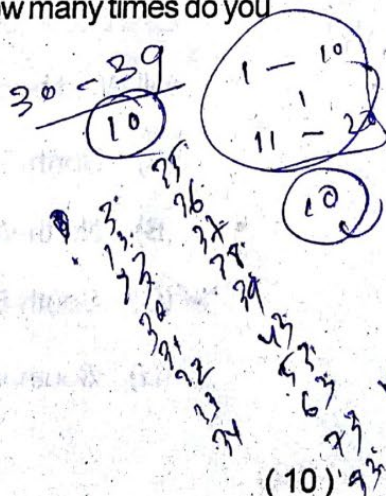 ow many times do you
30 - 39
10
1 - 10
1
11 - 20
10
3
13
23
30
31
32
33
34
35
36
37
38
39
43
53
63
73
93
( 10 )